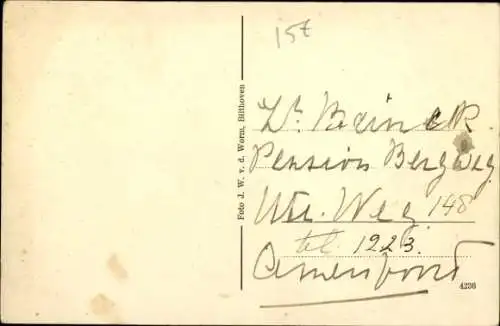 15t
Foto J. W. v. d. Worm, Bilthoven
Dr. Beinek
Pension Bergweg
Utr. Weg 148
tel. 1223.
Amersfoort
4236